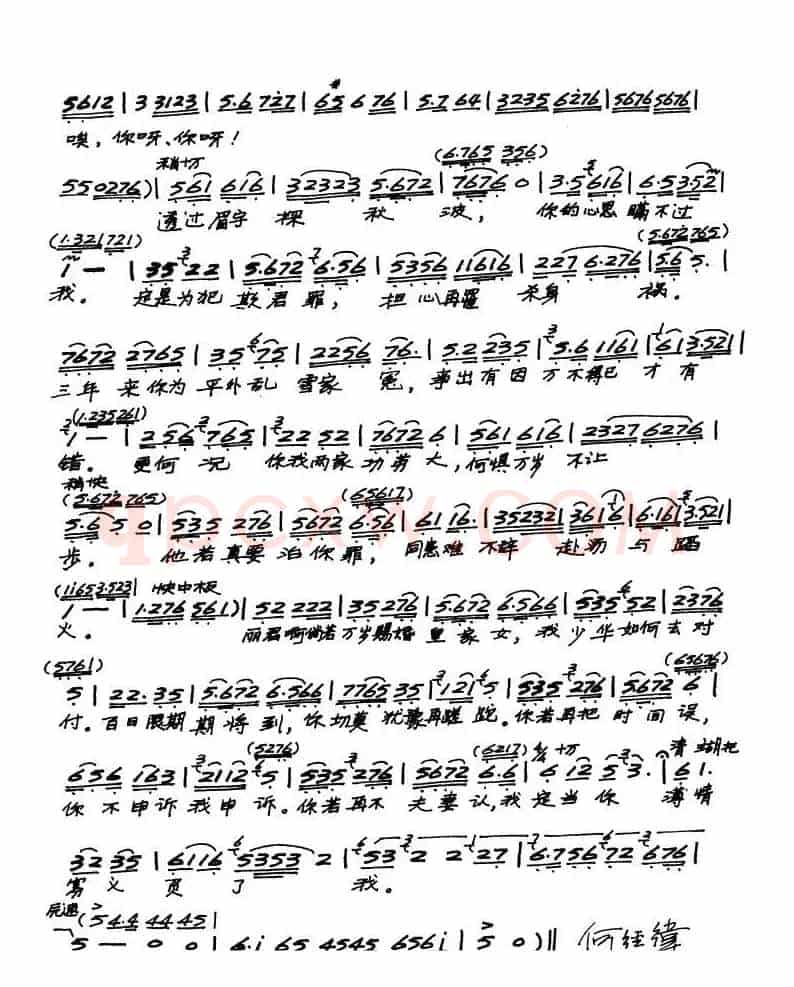 5612 | 3 3123 | 5.6 727 | 65 6 76 | 5.7 64 | 3235 6276 | 5676 5676 |
唉，你呀、你呀！
稍切 (6.765 356)
55 0276) | 561 616 | 32323 5.672 | 7676 0 | 3.5 616 | 6.5 352 |
透过眉宇 秋 波， 你的心思 瞒不过
(1.321 721) (5.672 765)
1 — | 35 22 | 5.672 6.56 | 5356 11616 | 227 6.276 | 5.6 5. |
我。 定是为犯 欺君罪， 担心再罹 杀身 祸。
7672 2765 | 35 75 | 2256 76. | 5.2 235 | 5.6 1161 | 6 3.521 |
三年 来你为 平外乱 雪家 冤， 事出有因 万不得已 才有
(1.235 261)
1 — | 256 765 | 22 52 | 7672 6 | 561 616 | 2327 6276 |
错。 更何 况 你我两家 功劳 大，何惧万岁 不让
稍快
(5.672 765) (65617)
5.6 5 0 | 535 276 | 5672 6.56 | 61 16. | 35232 | 3616 | 6.161 3.521 |
步。 他若真要 治你罪， 同患难 不辞 赴汤 与 蹈
(1165 3.523 | 快中板
1 — | 1.276 561) | 52 222 | 35 276 | 5.672 6.566 | 535 52 | 2376
火。 丽君啊倘若 万岁赐婚 皇家 女，我 少华如何去对
(5761) (65676)
5 | 22. 35 | 5.672 6.566 | 7765 35 | 121 5 | 535 276 | 5.672 6 |
付。百日限期 期将到，你切莫 犹豫再蹉跎。你若再把 时间误，
(5276) (6217) 清唱
656 163 | 2112 5 | 535 276 | 5672 6.6 | 6 12 53. | 61.
你 不申诉 我申 诉。你若再不 夫妻认，我定当你 薄情
32 35 | 6116 5353 2 | 53 2 2 27 | 6.756 72 676 |
寡义 负 了 我。
(5 4.4 44 45 |
5 — 0 0 | 6.i 65 4545 656i | 5 0 ) || 何经纬
qpcxw.COM